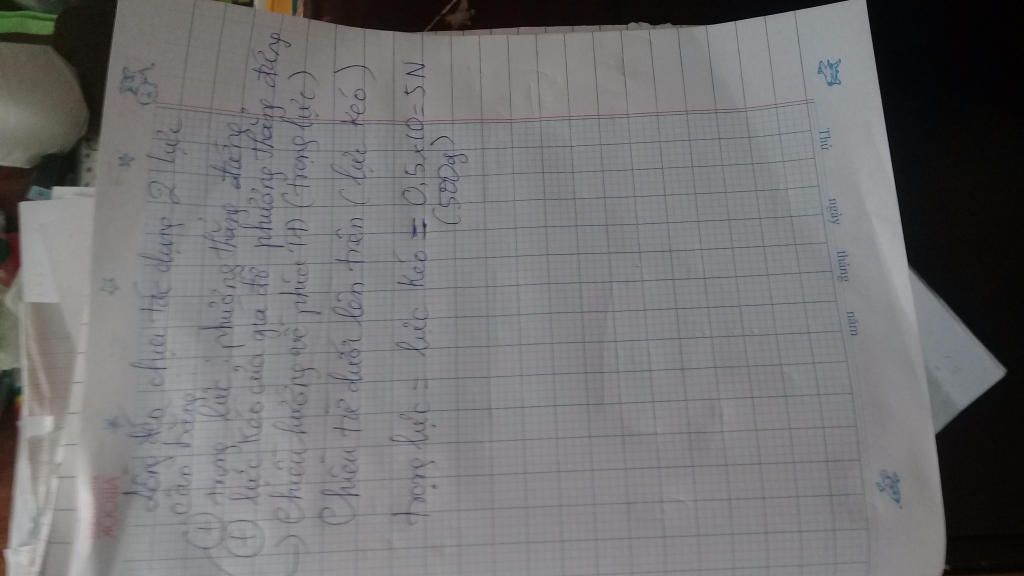 Thứ ngày tháng năm
Lồng đèn chịu tác dụng 2 lực
cân bằng
+ trọng lực: phương thẳng đứng
+ lực kéo của giá đỡ phương thẳng đứng
-> Chiều hướng về phía TĐ (trọng lực)
Chiều từ dưới lên trên (lực kéo)
trọng lực = lực kéo = 0,5x10 = 5N
(500g)